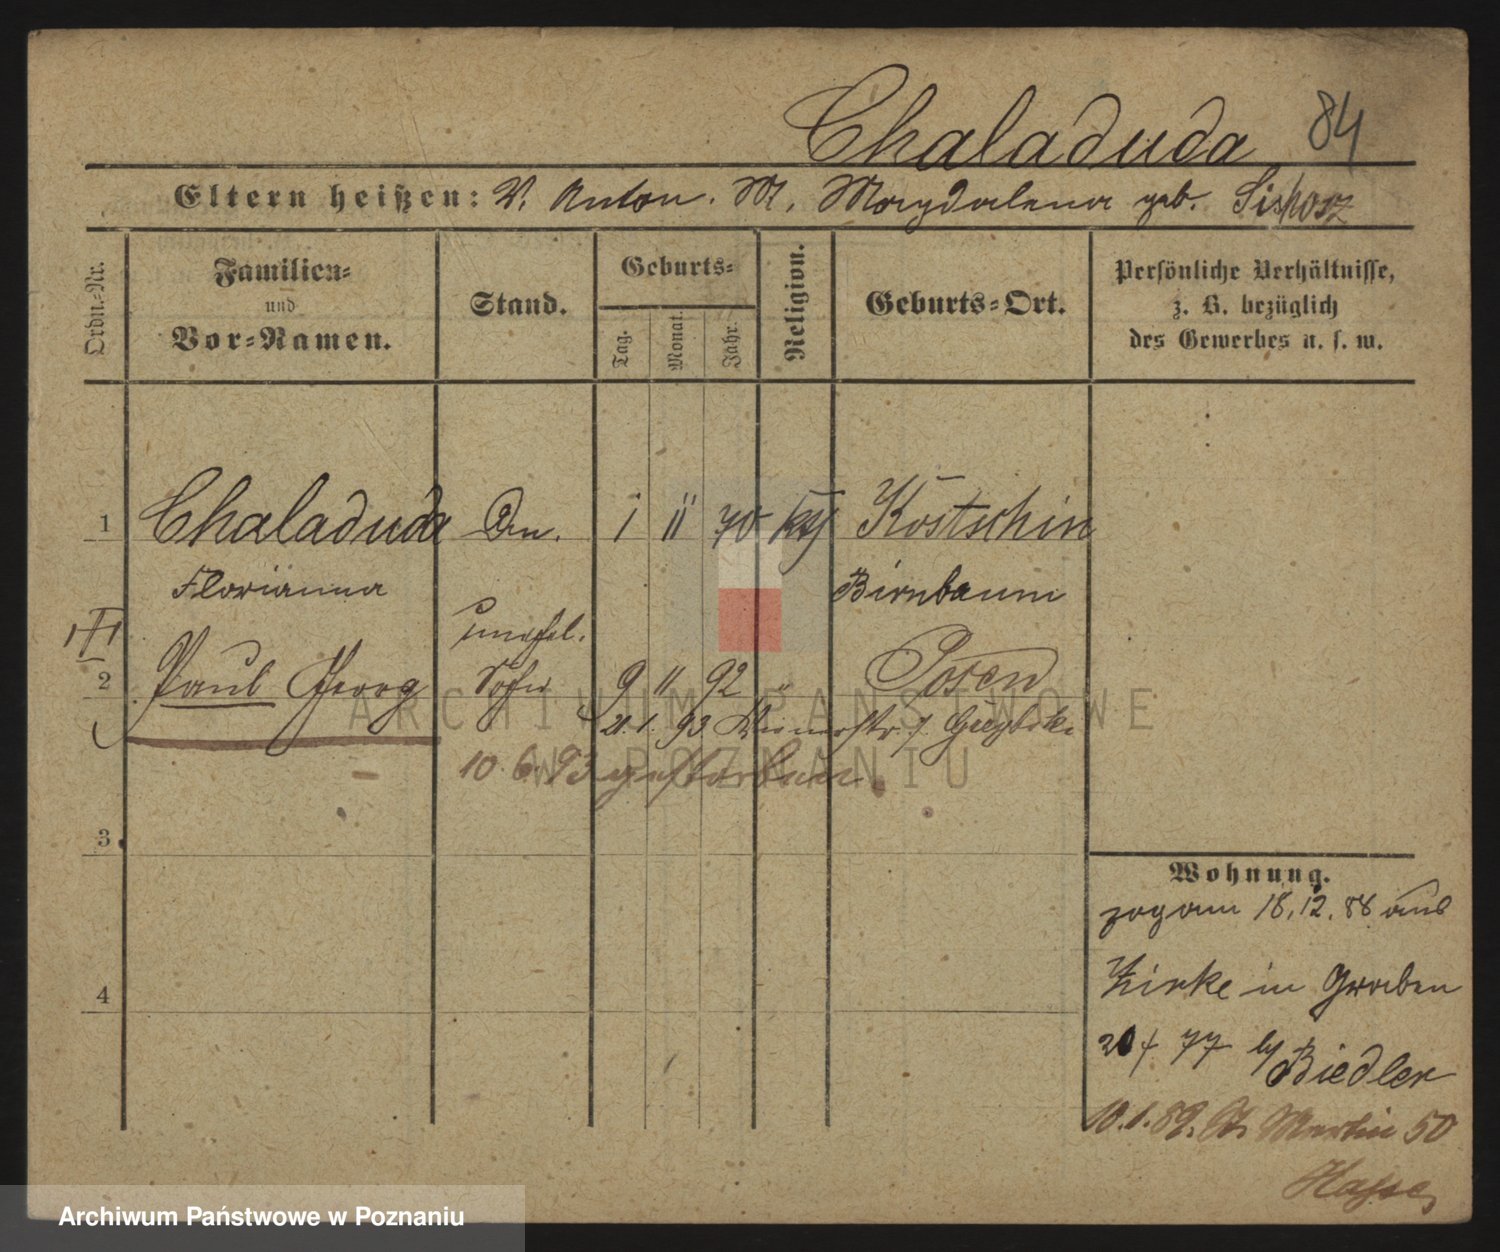 Chaladuda 84
Eltern heißen: V. Anton. M. Magdalena geb.
Ordn.-Nr.
Familien-
und
Vor-Namen.
Stand.
Geburts-
Tag.
Monat.
Jahr.
Religion.
Geburts-Ort.
Persönliche Verhältnisse,
z. B. bezüglich
des Gewerbes u. s. w.
1 Chaladuda 1 11 70 Kostschin
Florianna Birnbaum
unehel.
2 Paul Georg Sohn 9 11 92 " Posen
21. 1. 93
10. 6. 93 gestorben
3
4
Wohnung.
zog am 18.12.88 aus
Zirke in Graben
77 b/ Biedler
10.1.89. St. Martin 50
Hasse
ARCHIWUM PAŃSTWOWE
W POZNANIU
Archiwum Państwowe w Poznaniu